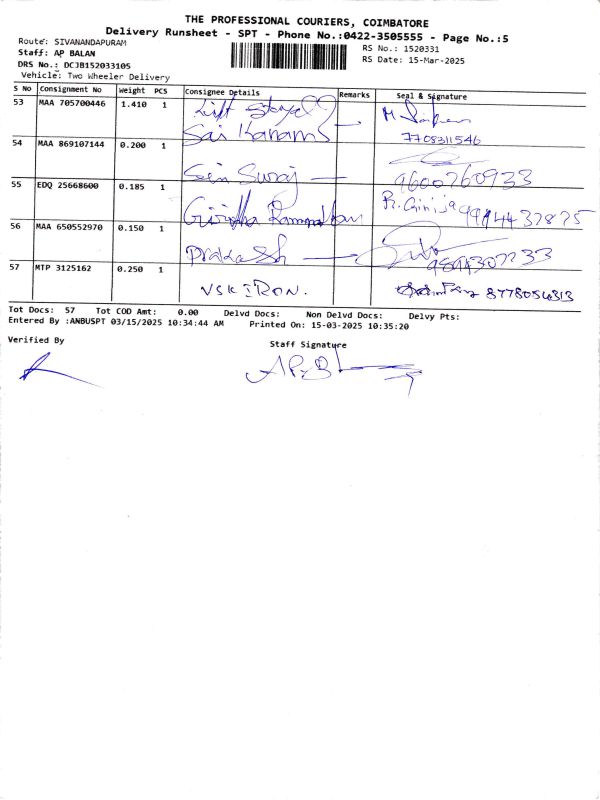 THE PROFESSIONAL COURIERS, COIMBATORE
Delivery Runsheet - SPT - Phone No.:0422-3505555 - Page No.:5
Route: SIVANANDAPURAM
RS No.: 1520331
Staff: AP BALAN
RS Date: 15-Mar-2025
DRS No.: DCJB152033105
Vehicle: Two Wheeler Delivery
S No Consignment No Weight PCS Consignee Details Remarks Seal & Signature
53 MAA 705700446 1.410 1
Sai Karam
7708311546
54 MAA 869107144 0.200 1
Suraj 9600760933
55 EDQ 25668600 0.185 1
56 MAA 650552970 0.150 1
Prakash
57 MTP 3125162 0.250 1
VSK IRON. 8778054313
Tot Docs: 57 Tot COD Amt: 0.00 Delvd Docs: Non Delvd Docs: Delvy Pts:
Entered By :ANBUSPT 03/15/2025 10:34:44 AM Printed On: 15-03-2025 10:35:20
Verified By Staff Signature